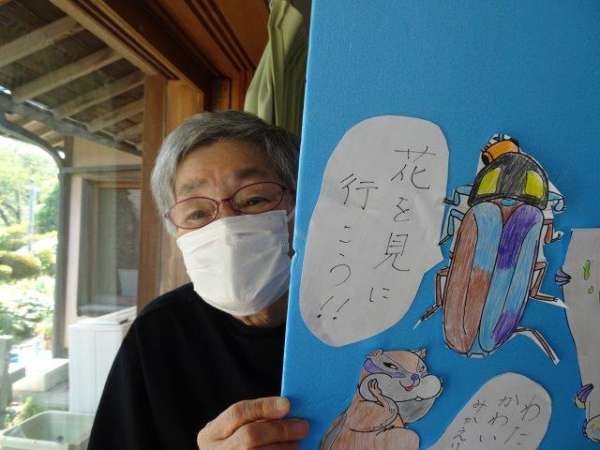 花を見に
行こう!!
わた
かわい
みかえり